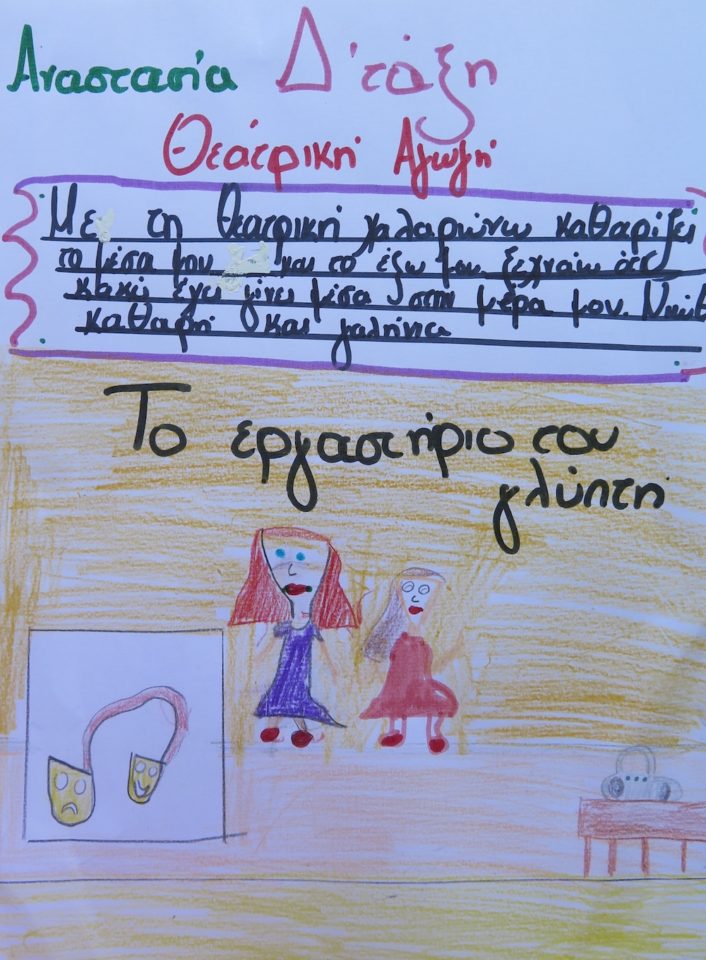 Αναστασία Δ' τάξη
Θεατρική Αγωγή
Με τη θεατρική χαλαρώνω καθαρίζει
το μέσα μου και το έξω μου ξεχνάω ότι
κακό έχει γίνει μέσα στην μέρα μου.
καθαρή και γαλήνια
Το εργαστήριο του
γλύπτη